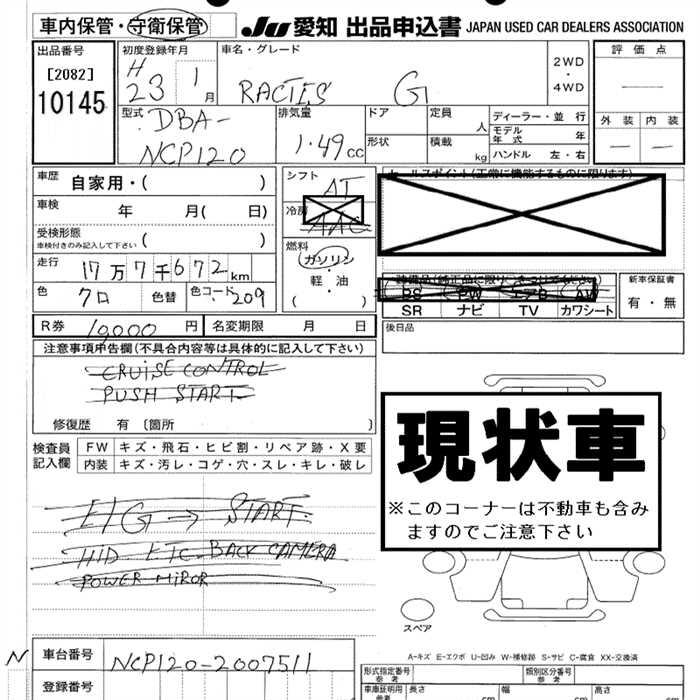 車内保管・守衛保管 JU 愛知 出品申込書 JAPAN USED CAR DEALERS ASSOCIATION
出品番号 初度登録年月 車名・グレード 2WD ・ 4WD 評価点
[2082] H 23 1 月 RACTIS G
10145
型式 DBA- NCP120 排気量 1.49 CC ドア 定員 人 ディーラー・並行 外装 内装
形状 積載 kg モデル年式 年
ハンドル 左・右
車歴 自家用・( ) シフト AT
車検 年 月( 日) 冷房 AAC
受検形態 ( )
車検付きのみ記入して下さい
燃料 ガソリン ・ 軽・油 ( )
走行 17万7千672km
色 クロ 色替 色コード 209
セールスポイント(正常に機能するものに限ります)
PS PW エアB AW
SR ナビ TV カワシート
新車保証書
有・無
R券 10,000 円 名変期限 月 日
後日品
注意事項申告欄(不具合内容等は具体的に記入して下さい)
CRUISE CONTROL
PUSH START
修復歴 有〔箇所 〕
検査員記入欄 FW キズ・飛石・ヒビ割・リペア跡・X要
内装 キズ・汚レ・コゲ・穴・スレ・キレ・破レ
現状車
※このコーナーは不動車も含み
ますのでご注意下さい
E/G → START
HID ETC BACK CAMERA
POWER MIROR
スペア
A-キズ E-エクボ U-凹み W-補修跡 S-サビ C-腐食 XX-交換済
N 車台番号 NCP120-2007511
登録番号
形式指定番号 参考 類別区分番号 参考
車庫証明用 参考 長さ 幅 高さ